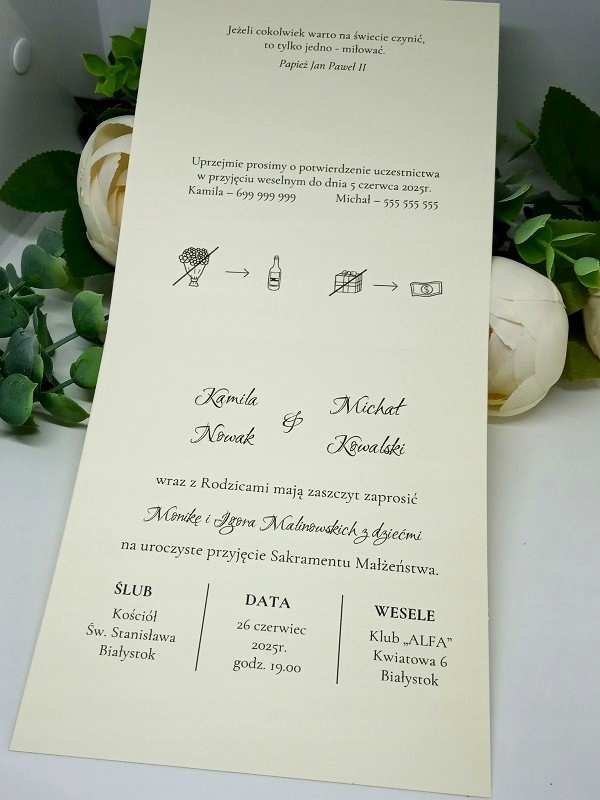 Jeżeli cokolwiek warto na świecie czynić,
to tylko jedno - miłować.
Papież Jan Paweł II
Uprzejmie prosimy o potwierdzenie uczestnictwa
w przyjęciu weselnym do dnia 5 czerwca 2025r.
Kamila – 699 999 999 Michał – 555 555 555
Kamila & Michał
Nowak Kowalski
wraz z Rodzicami mają zaszczyt zaprosić
Monikę i Igora Malinowskich z dziećmi
na uroczyste przyjęcie Sakramentu Małżeństwa.
ŚLUB
Kościół
Św. Stanisława
Białystok
DATA
26 czerwiec
2025r.
godz. 19.00
WESELE
Klub „ALFA”
Kwiatowa 6
Białystok